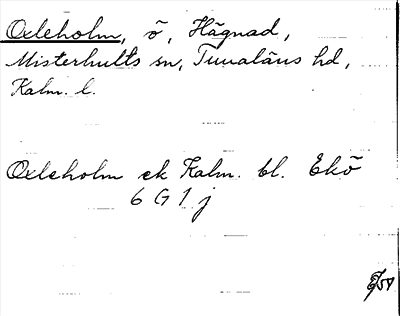 Oxleholm, ö, Hägnad,
Misterhults sn, Tunaläns hd,
Kalm. l.
Oxleholm ek Kalm. bl. Ekö
6 G 1 j